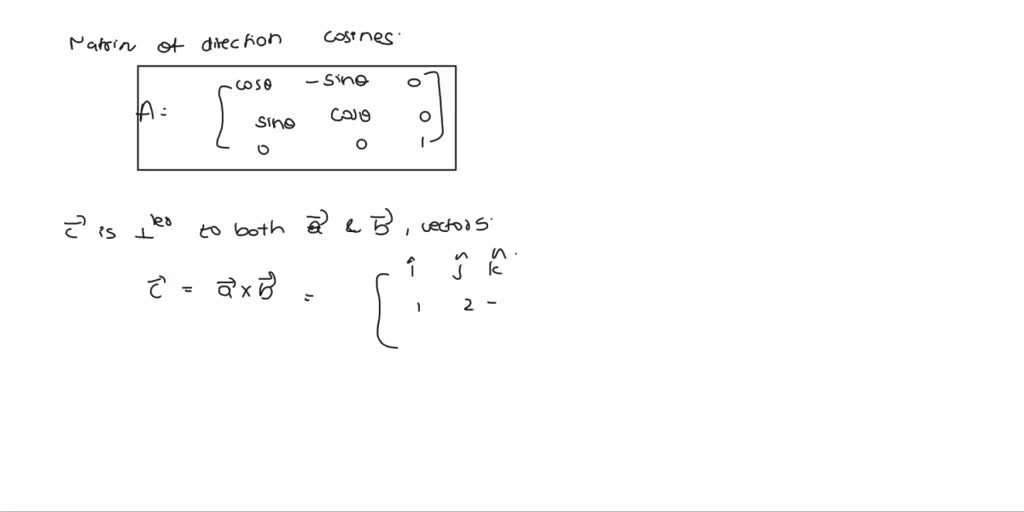 Matrix of direction cosines.
A = [ cosθ -sinθ 0
sinθ cosθ 0
0 0 1 ]
c⃗ is ⊥ler to both a⃗ & b⃗, vectors.
c⃗ = a⃗ × b⃗ = [ î ĵ k̂
1 2 -